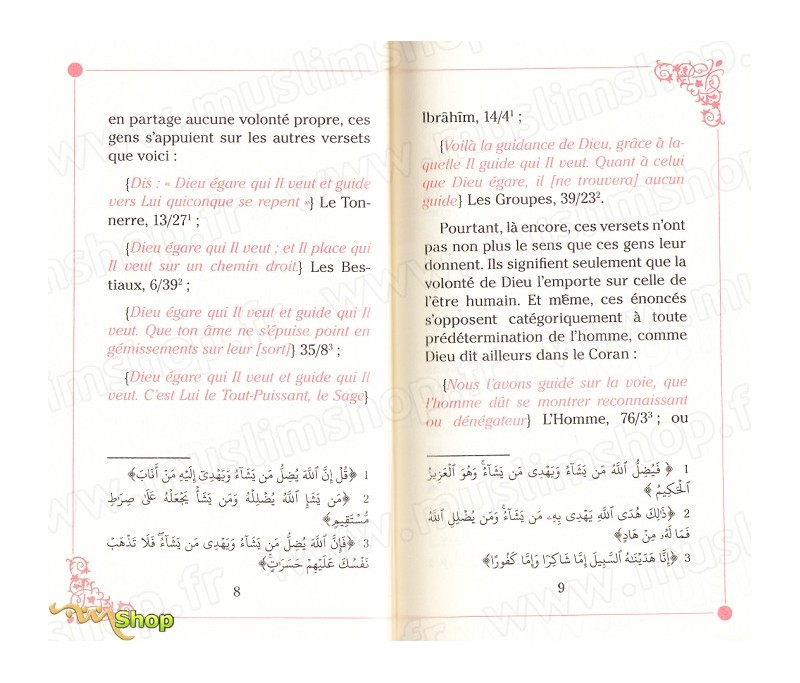 en partage aucune volonté propre, ces
gens s'appuient sur les autres versets
que voici :
{Dis : « Dieu égare qui Il veut et guide
vers Lui quiconque se repent »} Le Ton-
nerre, 13/27¹ ;
{Dieu égare qui Il veut ; et Il place qui
Il veut sur un chemin droit.} Les Bes-
tiaux, 6/39² ;
{Dieu égare qui Il veut et guide qui Il
veut. Que ton âme ne s'épuise point en
gémissements sur leur [sort]} 35/8³ ;
{Dieu égare qui Il veut et guide qui Il
veut. C'est Lui le Tout-Puissant, le Sage}
1 ﴿قُلْ إِنَّ اللَّهَ يُضِلُّ مَن يَشَاءُ وَيَهْدِي إِلَيْهِ مَنْ أَنَابَ﴾
2 ﴿مَن يَشَإِ اللَّهُ يُضْلِلْهُ وَمَن يَشَأْ يَجْعَلْهُ عَلَىٰ صِرَاطٍ
مُّسْتَقِيمٍ﴾
3 ﴿فَإِنَّ اللَّهَ يُضِلُّ مَن يَشَاءُ وَيَهْدِي مَن يَشَاءُ ۖ فَلَا تَذْهَبْ
نَفْسُكَ عَلَيْهِمْ حَسَرَاتٍ﴾
8
Ibrâhîm, 14/4¹ ;
{Voilà la guidance de Dieu, grâce à la-
quelle Il guide qui Il veut. Quant à celui
que Dieu égare, il [ne trouvera] aucun
guide} Les Groupes, 39/23².
Pourtant, là encore, ces versets n'ont
pas non plus le sens que ces gens leur
donnent. Ils signifient seulement que la
volonté de Dieu l'emporte sur celle de
l'être humain. Et même, ces énoncés
s'opposent catégoriquement à toute
prédétermination de l'homme, comme
Dieu dit ailleurs dans le Coran :
{Nous l'avons guidé sur la voie, que
l'homme dût se montrer reconnaissant
ou dénégateur} L'Homme, 76/3³ ; ou
1 ﴿ فَيُضِلُّ اللَّهُ مَن يَشَاءُ وَيَهْدِي مَن يَشَاءُ ۚ وَهُوَ الْعَزِيزُ
الْحَكِيمُ ﴾
2 ﴿ذَٰلِكَ هُدَى اللَّهِ يَهْدِي بِهِ مَن يَشَاءُ ۚ وَمَن يُضْلِلِ اللَّهُ
فَمَا لَهُ مِنْ هَادٍ﴾
3 ﴿إِنَّا هَدَيْنَاهُ السَّبِيلَ إِمَّا شَاكِرًا وَإِمَّا كَفُورًا﴾
9
Shop
www.muslimshop.fr